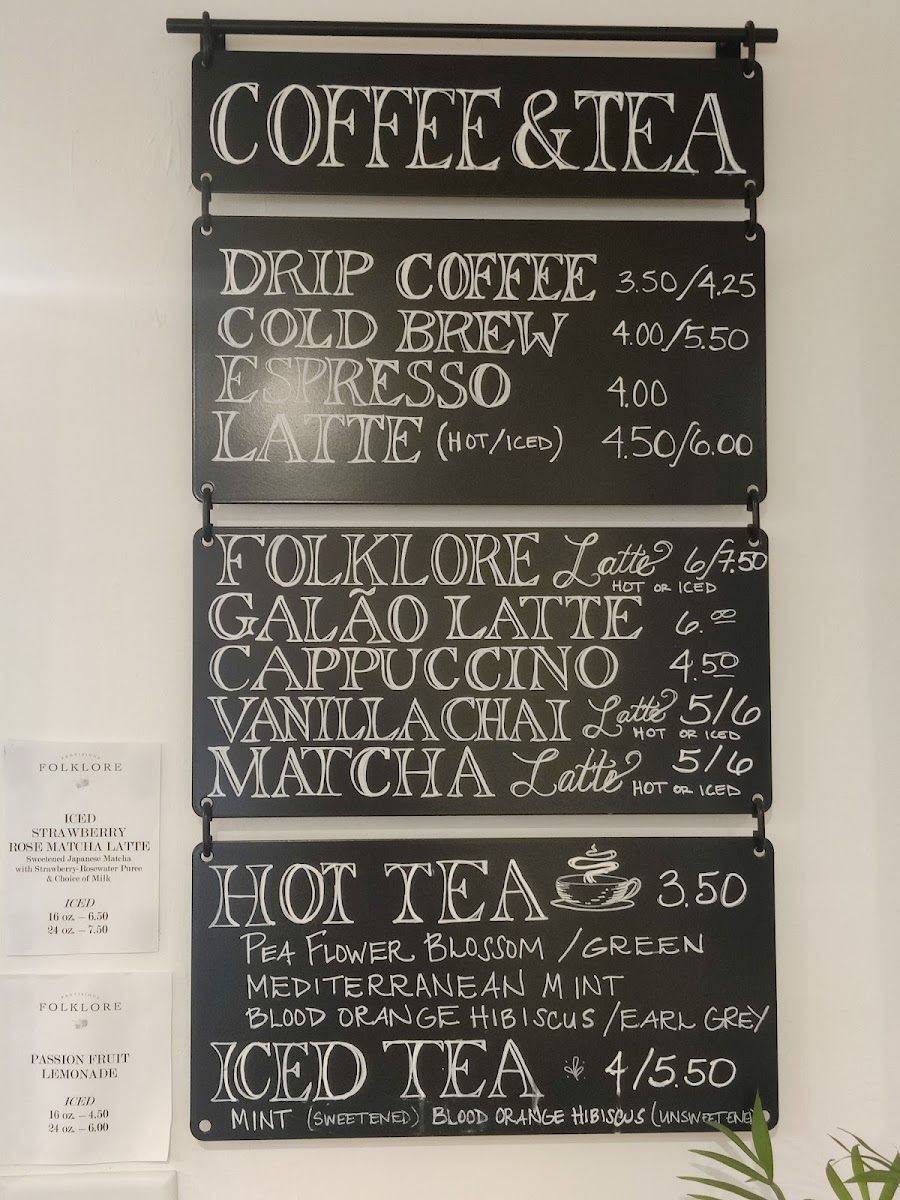 COFFEE & TEA
DRIP COFFEE 3.50/4.25
COLD BREW 4.00/5.50
ESPRESSO 4.00
LATTE (HOT/ICED) 4.50/6.00
FOLKLORE Latte 6/7.50
HOT OR ICED
GALÃO LATTE 6.00
CAPPUCCINO 4.50
VANILLA CHAI Latte 5/6
HOT OR ICED
MATCHA Latte 5/6
HOT OR ICED
HOT TEA 3.50
PEA FLOWER BLOSSOM / GREEN
MEDITERRANEAN MINT
BLOOD ORANGE HIBISCUS / EARL GREY
ICED TEA 4/5.50
MINT (SWEETENED) BLOOD ORANGE HIBISCUS (UNSWEETENED
FOLKLORE
ICED
STRAWBERRY
ROSE MATCHA LATTE
Sweetened Japanese Matcha
with Strawberry-Rosewater Puree
& Choice of Milk
ICED
16 oz. – 6.50
24 oz. – 7.50
FOLKLORE
PASSION FRUIT
LEMONADE
ICED
16 oz. – 4.50
24 oz. – 6.00